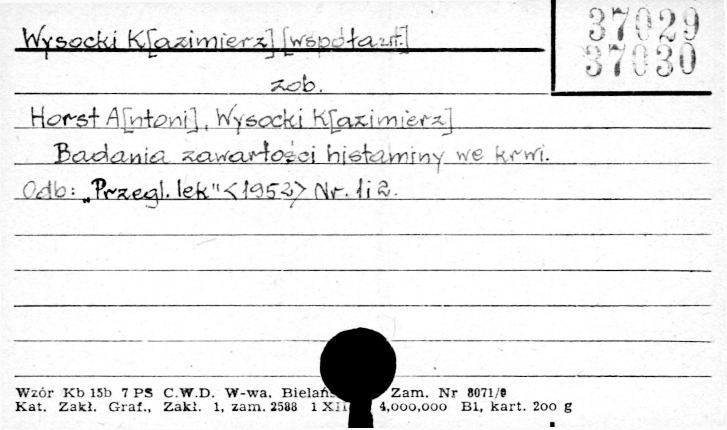 Wysocki K[azimierz] [współaut.]
37029
37030
zob.
Horst A[ntoni], Wysocki K[azimierz]
Badania zawartości histaminy we krwi.
Odb: „Przegl. lek" <1952> Nr. 1i2.
Wzór Kb 15b 7 PS C.W.D. W-wa, Zam. Nr 8071/
Kat. Zakł. Graf., Zakł. 1, zam. 2588 1 4,000,000 B1, kart. 200 g